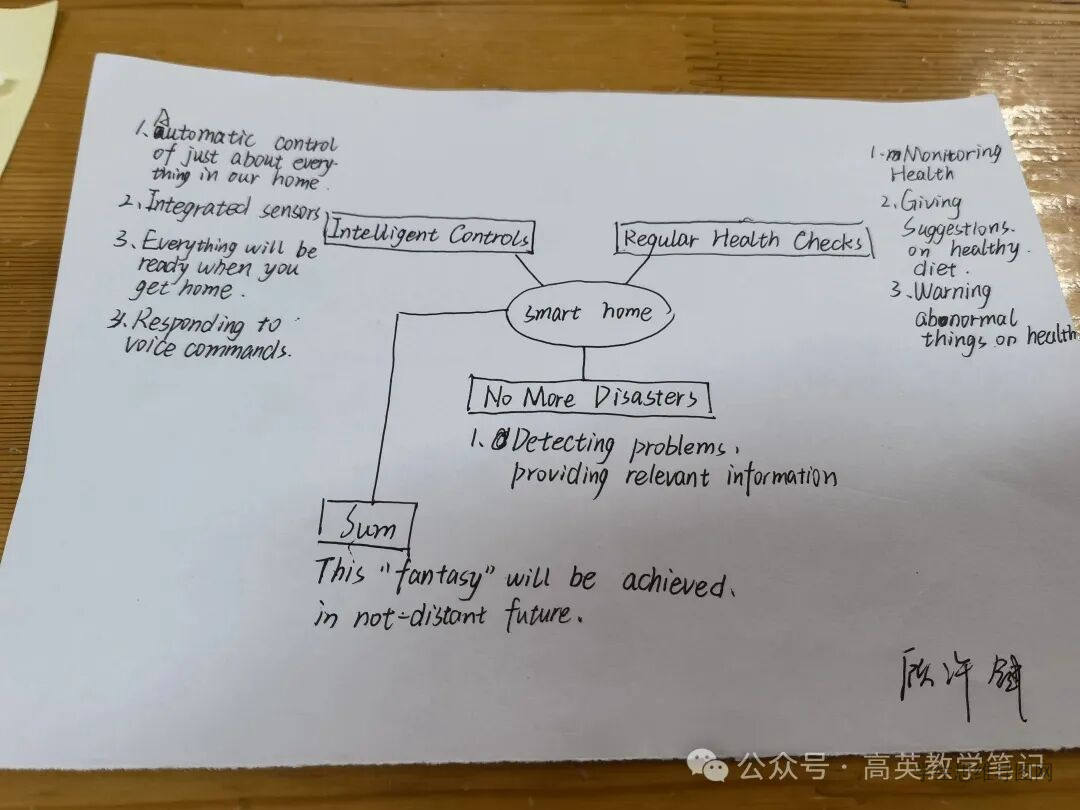 1. Automatic control
of just about every-
thing in our home.
2. Integrated sensors
3. Everything will be
ready when you
get home.
4. Responding to
voice commands.
Intelligent Controls
Regular Health Checks
1. Monitoring
Health
2. Giving
Suggestions.
on healthy
diet.
3. Warning
abnormal
things on health
smart home
No More Disasters
1. Detecting problems,
providing relevant information
Sum
This "fantasy" will be achieved.
in not-distant future.
公众号·高英教学笔记